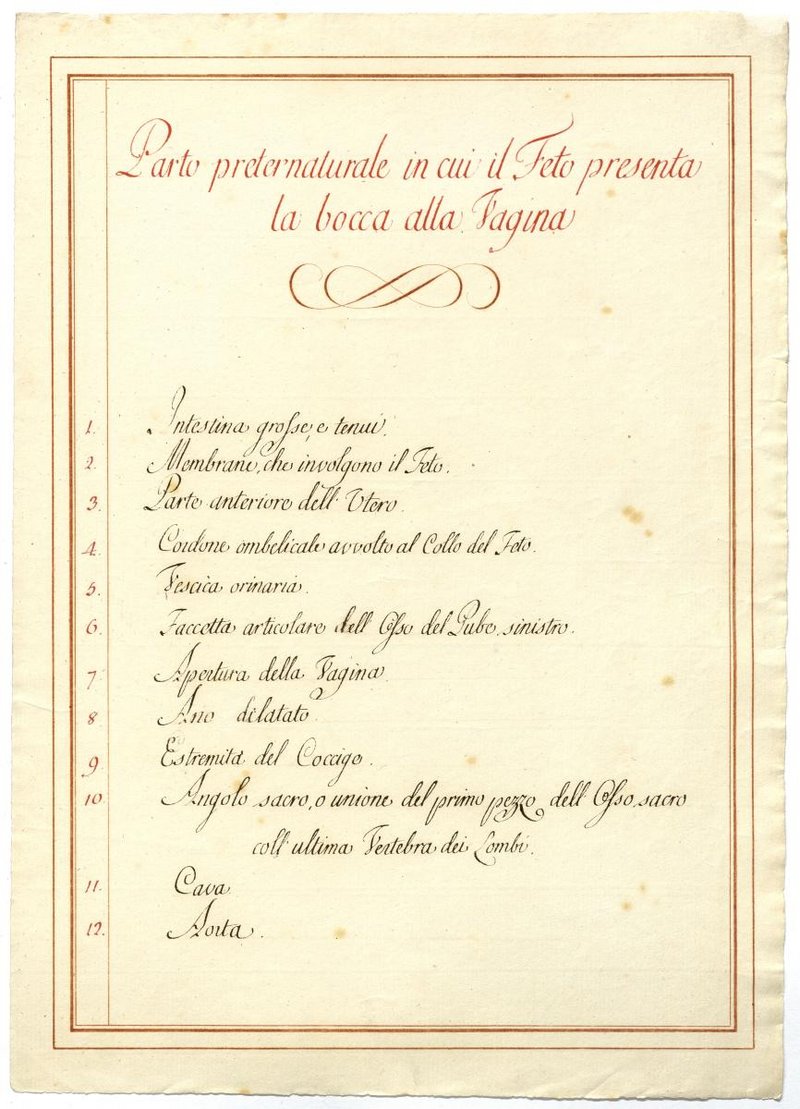 Parto preternaturale in cui il Feto presenta
la bocca alla Vagina
1. Intestina grosse, e tenui.
2. Membrane, che involgono il Feto.
3. Parte anteriore dell' Utero.
4. Cordone ombelicale avvolto al Collo del Feto.
5. Vescica orinaria.
6. Faccetta articolare dell' Osso del Pube sinistro.
7. Apertura della Vagina
8. Ano dilatato.
9. Estremità del Coccige.
10. Angolo sacro, o unione del primo pezzo dell' Osso sacro
coll' ultima Vertebra dei Lombi.
11. Cava
12. Aorta.